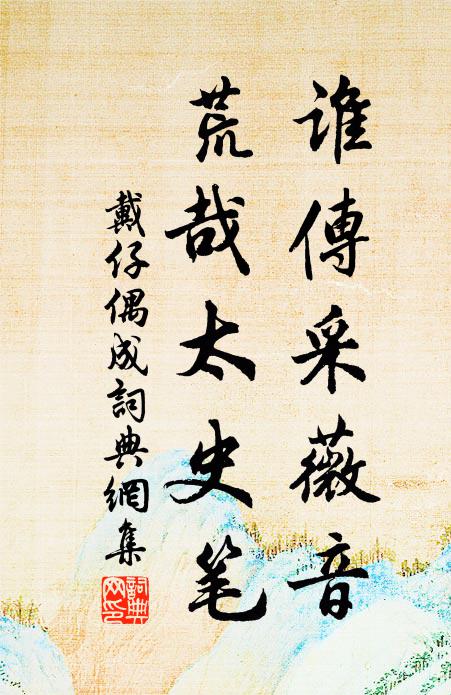 誰傳采薇音
荒哉太史笔
戴仔偶成詞典網集
詞典网印